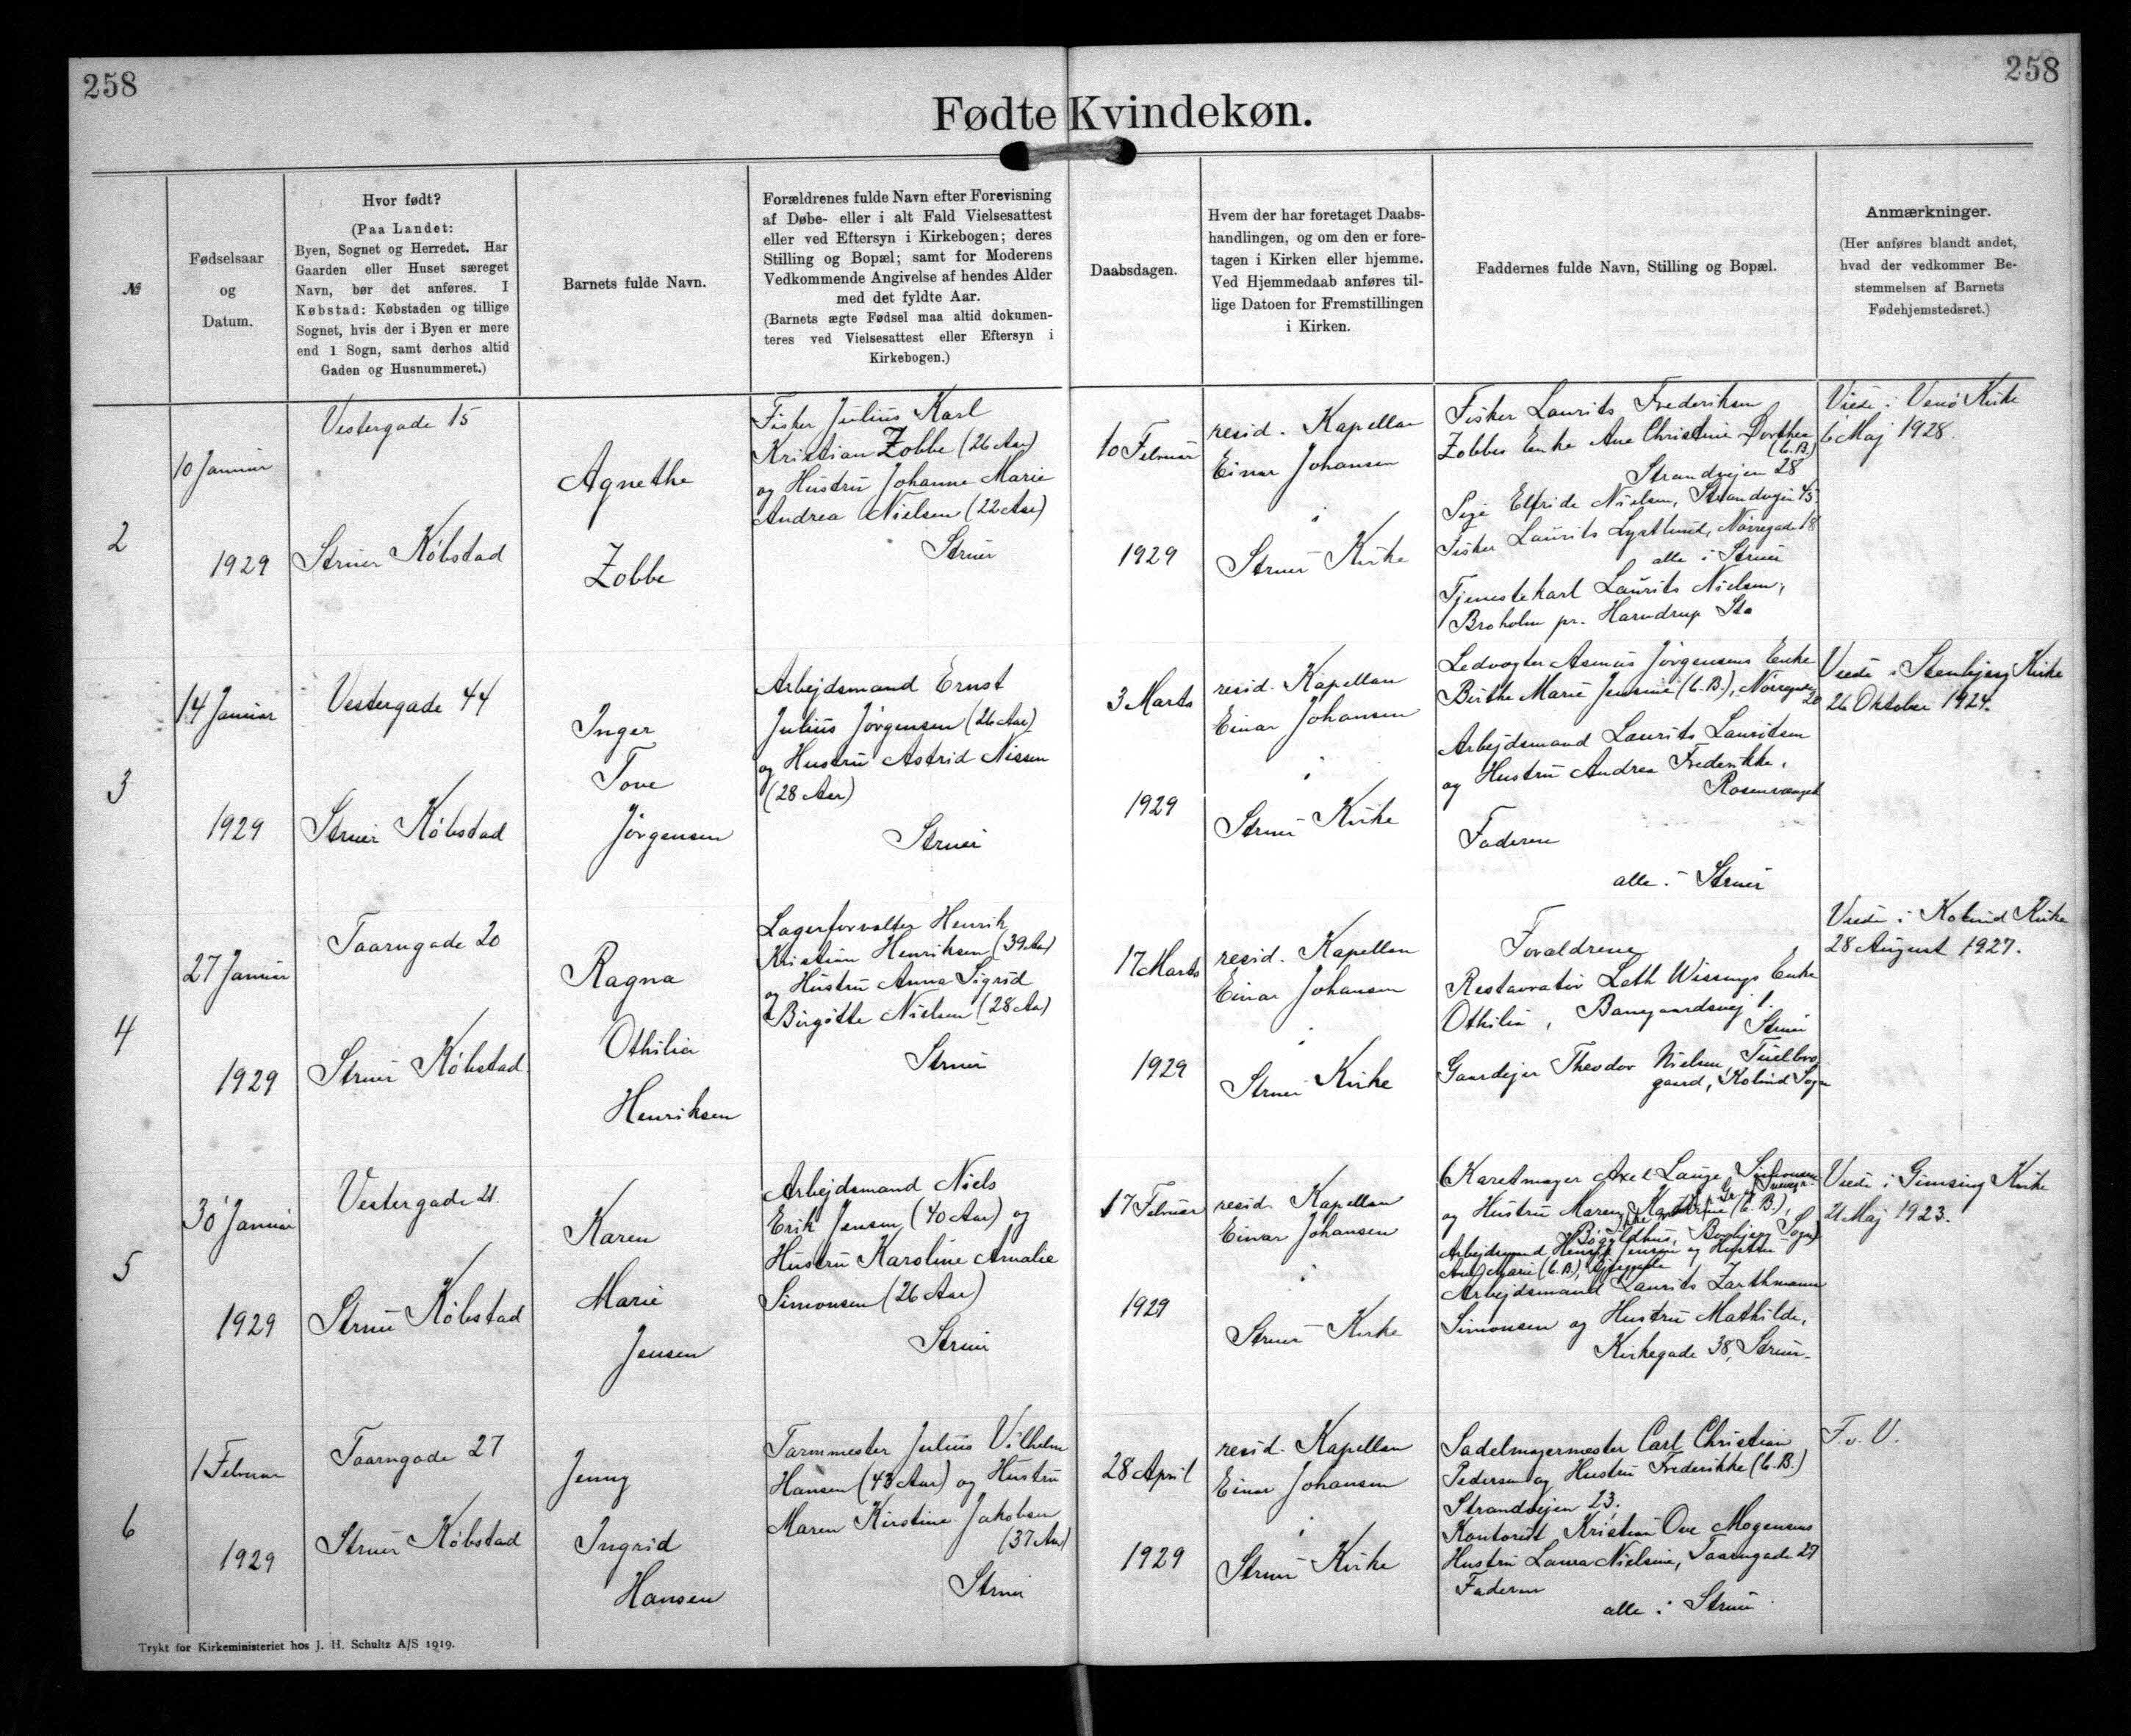 258
258
Fødte Kvindekøn.
№
Fødselsaar
og
Datum.
Hvor født?
(Paa Landet:
Byen, Sognet og Herredet. Har
Gaarden eller Huset særeget
Navn, bør det anføres. I
Købstad: Købstaden og tillige
Sognet, hvis der i Byen er mere
end 1 Sogn, samt derhos altid
Gaden og Husnummeret.)
Barnets fulde Navn.
Forældrenes fulde Navn efter Forevisning
af Døbe- eller i alt Fald Vielsesattest
eller ved Eftersyn i Kirkebogen; deres
Stilling og Bopæl; samt for Moderens
Vedkommende Angivelse af hendes Alder
med det fyldte Aar.
(Barnets ægte Fødsel maa altid dokumen-
teres ved Vielsesattest eller Eftersyn i
Kirkebogen.)
Daabsdagen.
Hvem der har foretaget Daabs-
handlingen, og om den er fore-
tagen i Kirken eller hjemme.
Ved Hjemmedaab anføres til-
lige Datoen for Fremstillingen
i Kirken.
Faddernes fulde Navn, Stilling og Bopæl.
Anmærkninger.
(Her anføres blandt andet,
hvad der vedkommer Be-
stemmelsen af Barnets
Fødehjemstedsret.)
2
10 Januar
1929
Vestergade 15
Struer Købstad
Agnethe
Zobbe
Fisker Julius Karl
Kristian Zobbe (26 Aar)
og Hustru Johanne Marie
Andrea Nielsen (22 Aar)
Struer
10 Februar
1929
resid. Kapellan
Einar Johansen
i
Struer Kirke
Fisker Laurits Frederiksen
Zobbes Enke Ane Christine Dorthea
(C.B.)
Strandvejen 28
Pige Elfride Nielsen, Strandvejen 45
Fisker Laurits Lystlund, Nørregade 18
alle i Struer
Tjenestekarl Laurits Nielsen,
Broholm pr. Harndrup Sta
Viede i Venø Kirke
6 Maj 1928.
3
14 Januar
1929
Vestergade 44
Struer Købstad
Inger
Tove
Jørgensen
Arbejdsmand Ernst
Julius Jørgensen (26 Aar)
og Hustru Astrid Nissen
(28 Aar)
Struer
3 Marts
1929
resid. Kapellan
Einar Johansen
i
Struer Kirke
Ledvogter Asmus Jørgensens Enke
Birthe Marie Jensine (C.B.), Nørregade
20
Arbejdsmand Laurits Lauritsen
og Hustru Andrea Frederikke,
Rosenvænget
Faderen
alle i Struer
Viede i Stenbjerg Kirke
26 Oktober 1924.
4
27 Januar
1929
Taarngade 20
Struer Købstad
Ragna
Othilia
Henriksen
Lagerforvalter Henrik
Kristian Henriksen (39 Aar)
og Hustru Anna Sigrid
Birgitte Nielsen (28 Aar)
Struer
17 Marts
1929
resid. Kapellan
Einar Johansen
i
Struer Kirke
Forældrene
Restauratør Leth Wissings Enke
Othilia, Bangaardsvej 1.
Struer
Gaardejer Theodor Nielsen,
gaard, Kolind Sogn
Viede i Kolind Kirke
28 August 1927.
5
30 Januar
1929
Vestergade 21
Struer Købstad
Karen
Marie
Jensen
Arbejdsmand Niels
Erik Jensen (40 Aar) og
Hustru Karoline Amalie
Simonsen (26 Aar)
Struer
17 Februar
1929
resid. Kapellan
Einar Johansen
i
Struer Kirke
Karetmager Axel Lauge Simonsen
og Hustru Maren (C.B.),
Bovbjerg Sogn
Arbejdsmand Henrik Jensen og Hustru
Ane Marie (C.B.),
Arbejdsmand Laurits Zarthmann
Simonsen og Hustru Mathilde,
Kirkegade 38, Struer.
Viede i Gimsing Kirke
21 Maj 1923.
6
1 Februar
1929
Taarngade 27
Struer Købstad
Jenny
Ingrid
Hansen
Tarmmester Julius Vilhelm
Hansen (43 Aar) og Hustru
Maren Kirstine Jakobsen
(37 Aar)
Struer
28 April
1929
resid. Kapellan
Einar Johansen
i
Struer Kirke
Sadelmagermester Carl Christian
Pedersen og Hustru Frederikke (C.B.)
Strandvejen 23.
Kontorist Kristian Ove Mogensens
Hustru Laura Nielsine, Taarngade 27
Faderen
alle i Struer
F. v. V.
Trykt for Kirkeministeriet hos J. H. Schultz A/S 1919.